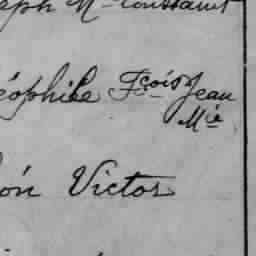 eph Mie Constant
éophile Fçois Jean
Mie
ón Victor